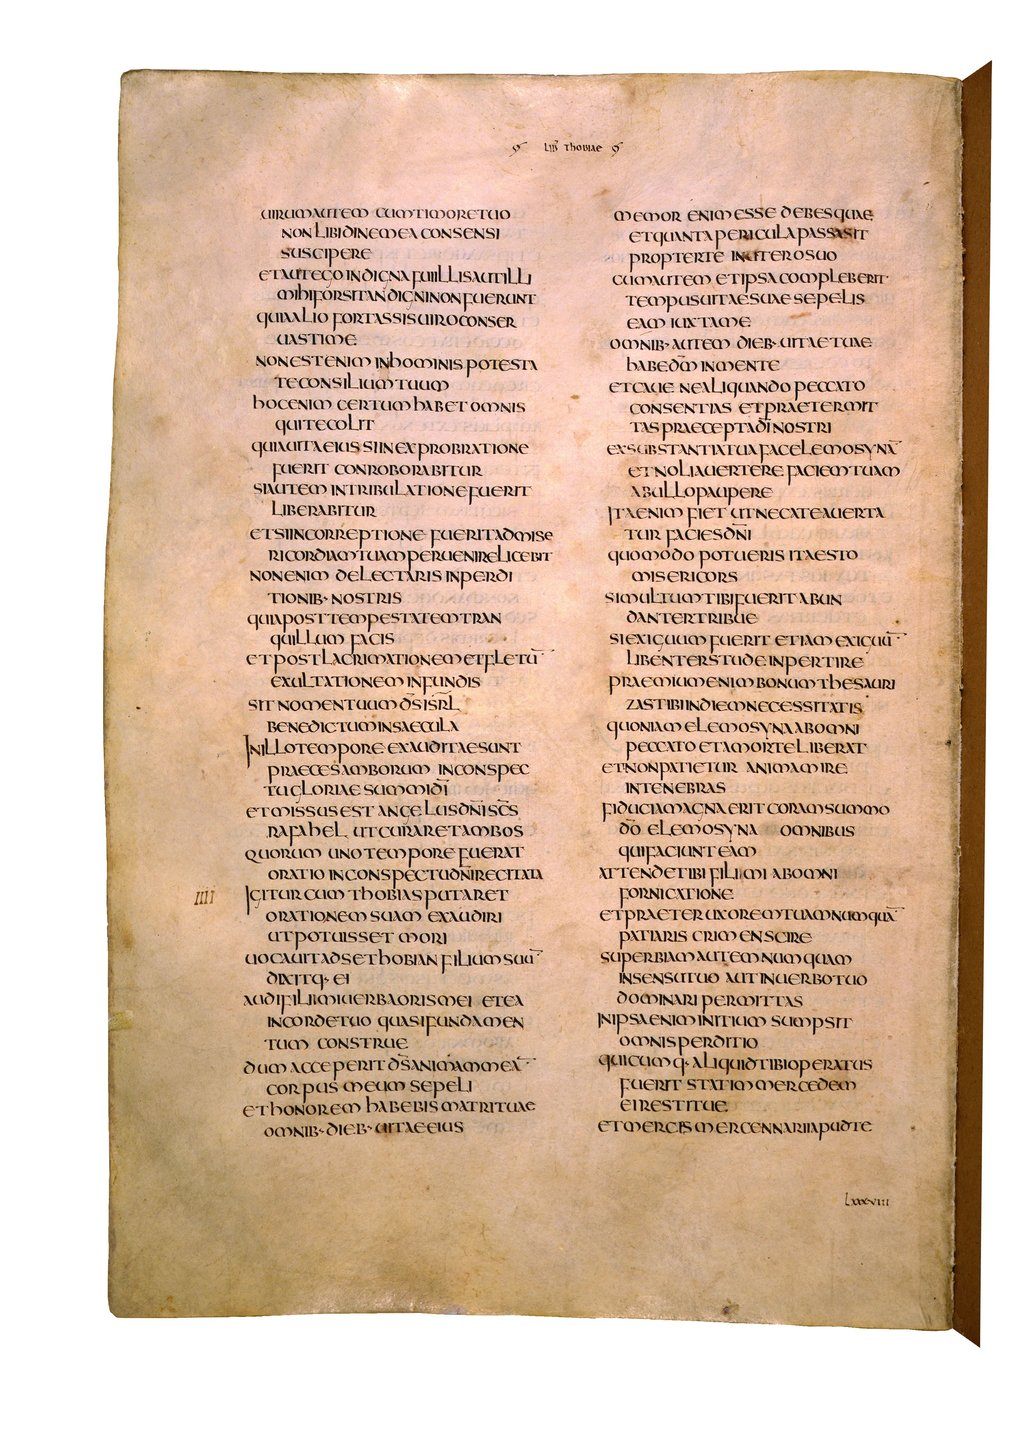 LIB THOBIAE
UIRUMAUTEM CUMTIMORETUO
NON LIBIDINEMEA CONSENSI
SUSCIPERE
ETAUTEGO INDIGNA FUIILLISAUTILLI
MIHIFORSITANDIGNINONFUERUNT
QUIAALIO FORTASSISUIROCONSER
UASTIME
NONESTENIM INHOMINIS POTESTA
TECONSILIUMTUUM
HOCENIM CERTUMHABET OMNIS
QUITECOLIT
QUIAUITAEIUSSIINEXPROBRATIONE
FUERIT CONROBORABITUR
SIAUTEM INTRIBULATIONEFUERIT
LIBERABITUR
ETSIINCORREPTIONE FUERITADMISE
RICORDIAMTUAMPERUENIRELICEBIT
NONENIM DELECTARIS INPERDI
TIONIB· NOSTRIS
QUIAPOSTTEMPESTATEMTRAN
QUILLUM FACIS
ETPOSTLACRIMATIONEMETFLETŪ
EXULTATIONEMINFUNDIS
SIT NOMENTUUMD̄SISRL̄
BENEDICTUMINSAECULA
INILLOTEMPORE EXAUDITAESUNT
PRAECESAMBORUM INCONSPEC
TUGLORIAE SUMMIDĪ
ETMISSUSEST ANGELUSDN̄ISC̄S
RAFAHEL UTCURARETAMBOS
QUORUM UNOTEMPORE FUERAT
ORATIO INCONSPECTUDN̄IRECITATA
IIII
IGITURCUMTHOBIASPUTARET
ORATIONEM SUAM EXAUDIRI
UTPOTUISSET MORI
UOCAUITADSETHOBIAN FILIUMSUŪ
DIXITQ· EI
AUDIFILIMIUERBAORISMEI ETEA
INCORDETUO QUASIFUNDAMEN
TUM CONSTRUE
DUM ACCEPERIT D̄SANIMAMMEĀ
CORPUS MEUM SEPELI
ETHONOREM HABEBIS MATRITUAE
OMNIB· DIEB· UITAEEIUS
MEMOR ENIMESSE DEBESQUAE
ETQUANTAPERICULAPASSASIT
PROPTERTE INUTEROSUO
CUMAUTEM ETIPSACOMPLEBERIT·
TEMPUSUITAESUAESEPELIS
EAM IUXTAME
OMNIB· AUTEM DIEB· UITAETUAE
HABEDM̄ INMENTE
ETCAUE NEALIQUANDO PECCATO
CONSENTIAS ETPRAETERMIT
TASPRAECEPTADĪNOSTRI
EXSUBSTANTIATUAFACELEMOSYNĀ
ETNOLIAUERTERE FACIEMTUAM
ABULLOPAUPERE
ITAENIM FIET UTNECATEAUERTA
TUR FACIESDN̄I
QUOMODO POTUERIS ITAESTO
MISERICORS
SIMULTUMTIBIFUERITABUN
DANTERTRIBUE
SIEXIGUUMFUERIT ETIAMEXIGUŪ
LIBENTERSTUDEINPERTIRE
PRAEMIUMENIMBONUMTHESAURI
ZASTIBIINDIEMNECESSITATIS
QUONIAM ELEMOSYNAABOMNI
PECCATO ETAMORTELIBERAT
ETNONPATIETUR ANIMAMIRE
INTENEBRAS
FIDUCIAMAGNAERIT CORAMSUMMO
DŌ ELEMOSYNA OMNIBUS
QUIFACIUNTEAM
ATTENDETIBI FILIMI ABOMNI
FORNICATIONE
ETPRAETERUXOREMTUAMNUMQUĀ
PATIARIS CRIMENSCIRE
SUPERBIAMAUTEMNUMQUAM
INSENSUTUO AUTINUERBOTUO
DOMINARI PERMITTAS
INIPSAENIMINITIUM SUMPSIT
OMNISPERDITIO
QUICUMQ· ALIQUIDTIBIOPERATUS
FUERIT STATIMMERCEDEM
EIRESTITUE
ETMERCISMERCENNARIIAPUDTE
LXXXVIII